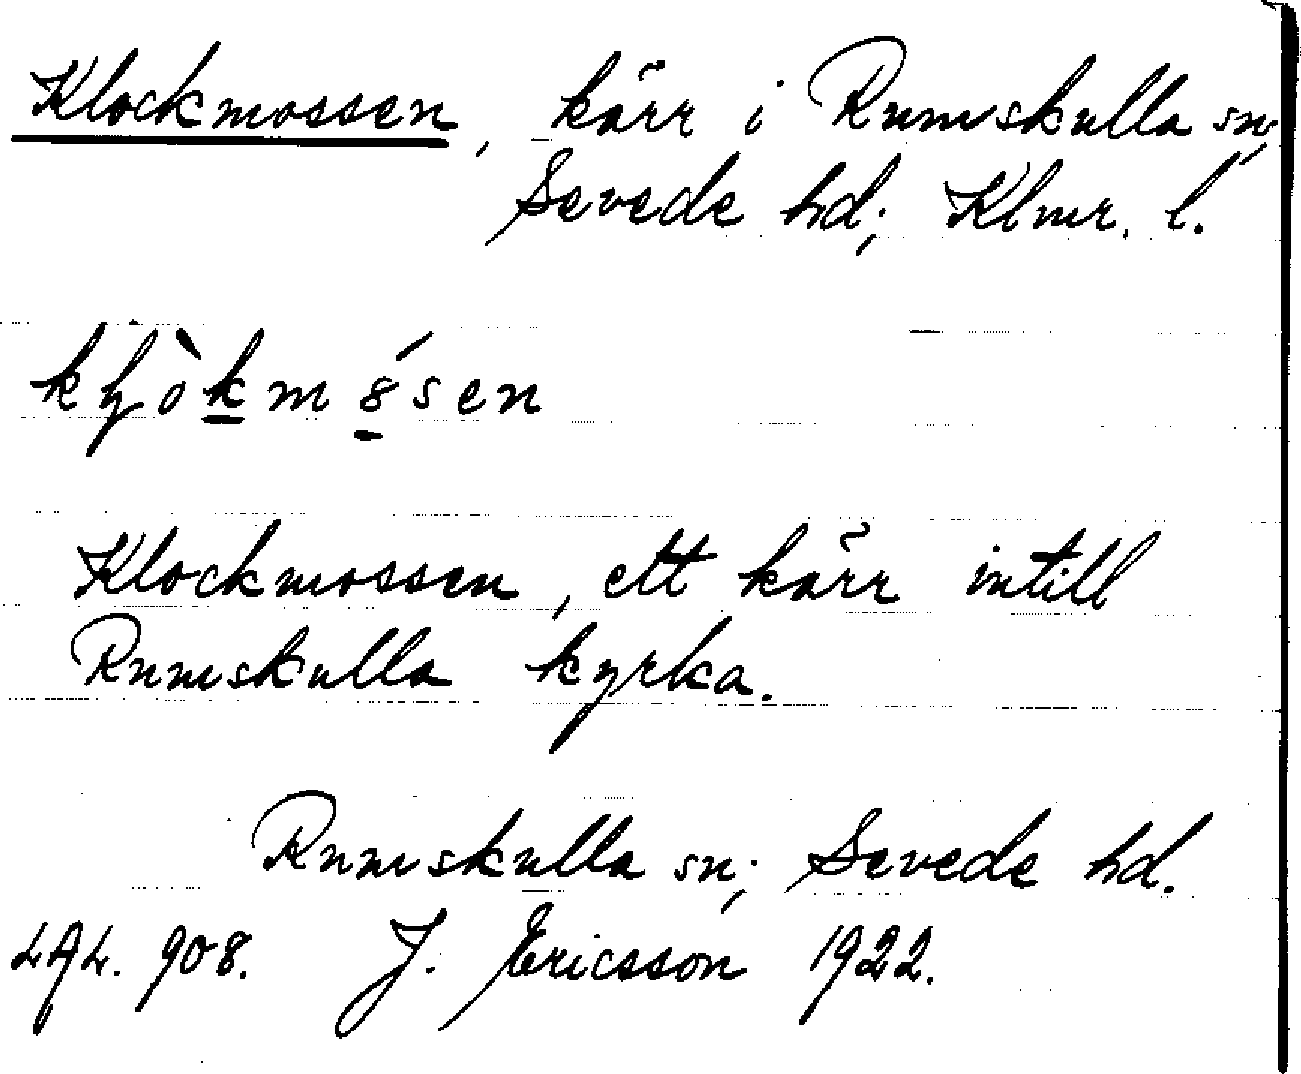 Klockmossen, kärr i Rumskulla sn,
Sevede hd; Klmr. l.
Klockmossen, ett kärr intill
Rumskulla kyrka.
Rumskulla sn; Sevede hd.
908. J. Ericsson 1922.